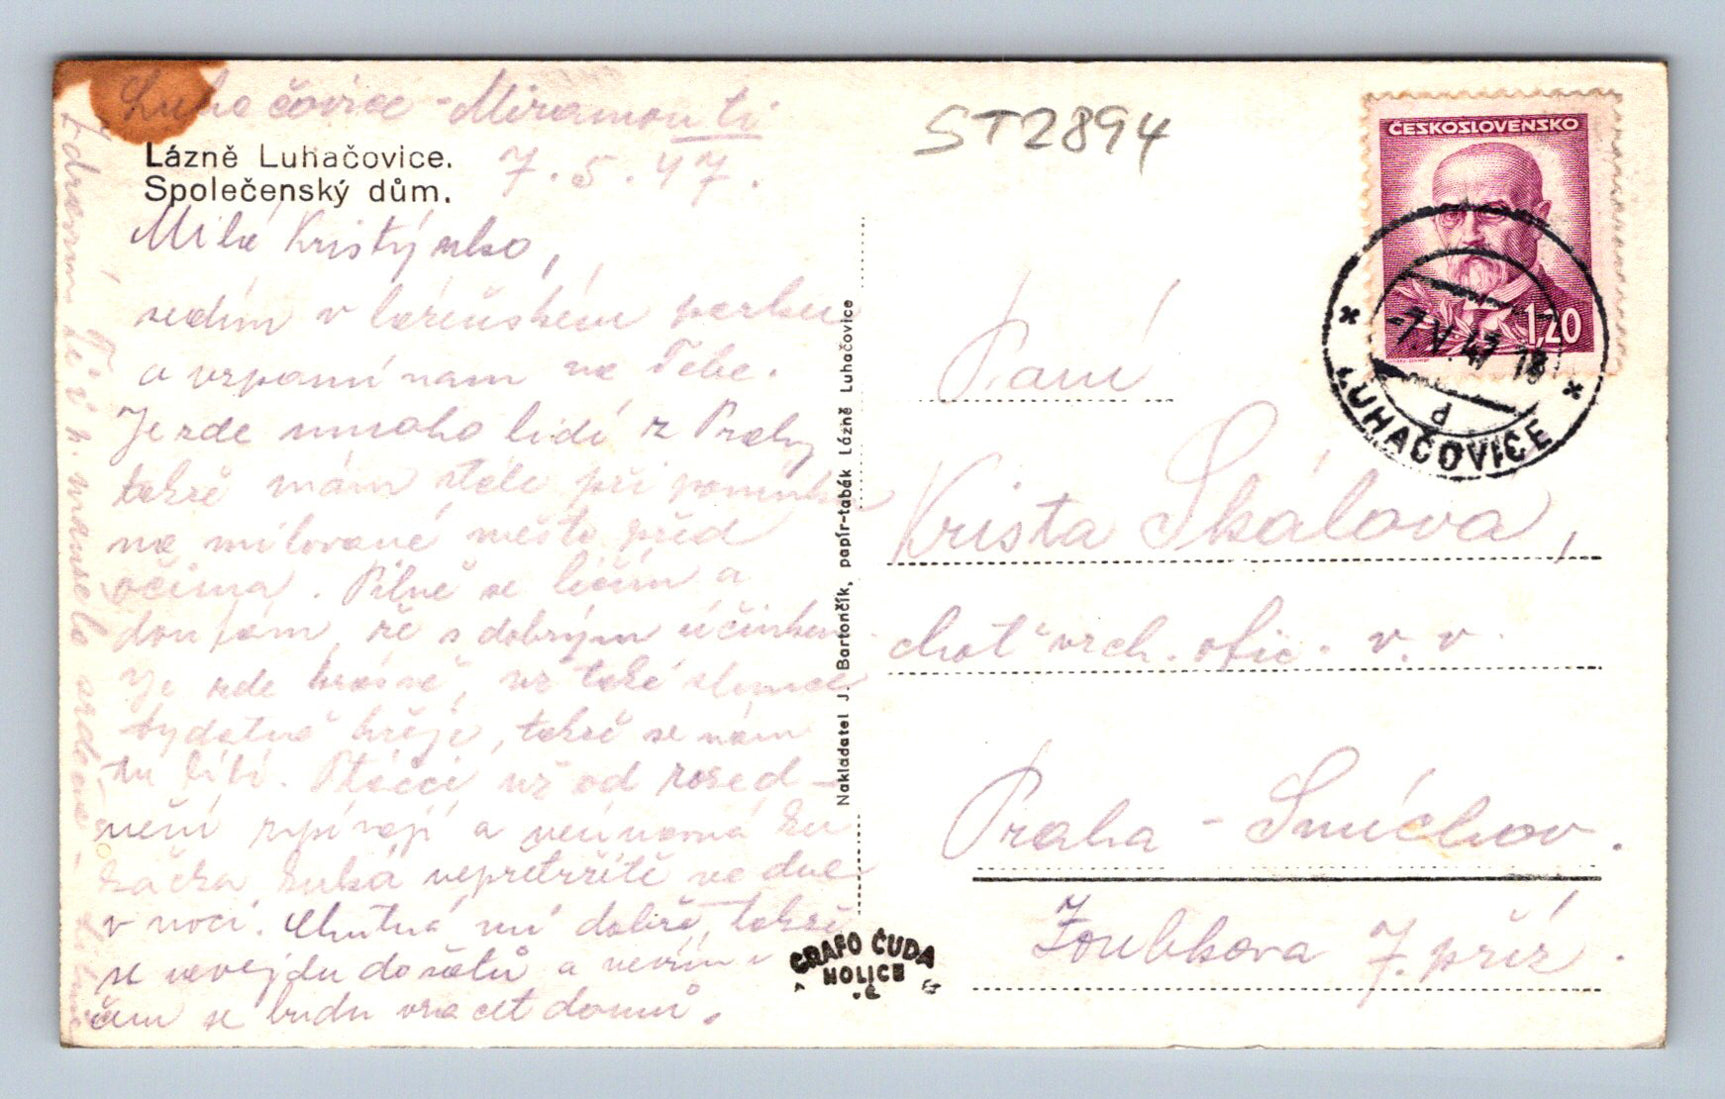 Luhačovice - Miramonti
7.5.47.
Lázně Luhačovice.
Společenský dům.
Milá Kristýnko,
sedím v lázeňském parku
a vzpomínám na Tebe.
Je zde mnoho lidí z Prahy
takže mám stále při pomínku
na milované město před
očima. Pilně se léčím a
doufám, že s dobrým účinkem
Je zde krásně, už také slunce
vydatně hřeje, takže se nám
tu líbí. Ptáčci už od rozed-
nění zpívají a neúnavná ku
kačka kuká nepřetržitě ve dne
v noci. Chutná mi dobře, takže
se nevejdu do šatů a nevím v
čem se budu vracet domů.
Zdraví Tě i p. manžela srdečně
ST2894
ČESKOSLOVENSKO
1,20
-7.V.47 18
d
LUHAČOVICE
Paní
Krista Skálova,
choť vrch. ofic. v. v.
Praha - Smíchov.
Zoubkova 7. příz.
Nakladatel J. Bartončík, papír-tabák Lázně Luhačovice
GRAFO ČUDA
HOLICE